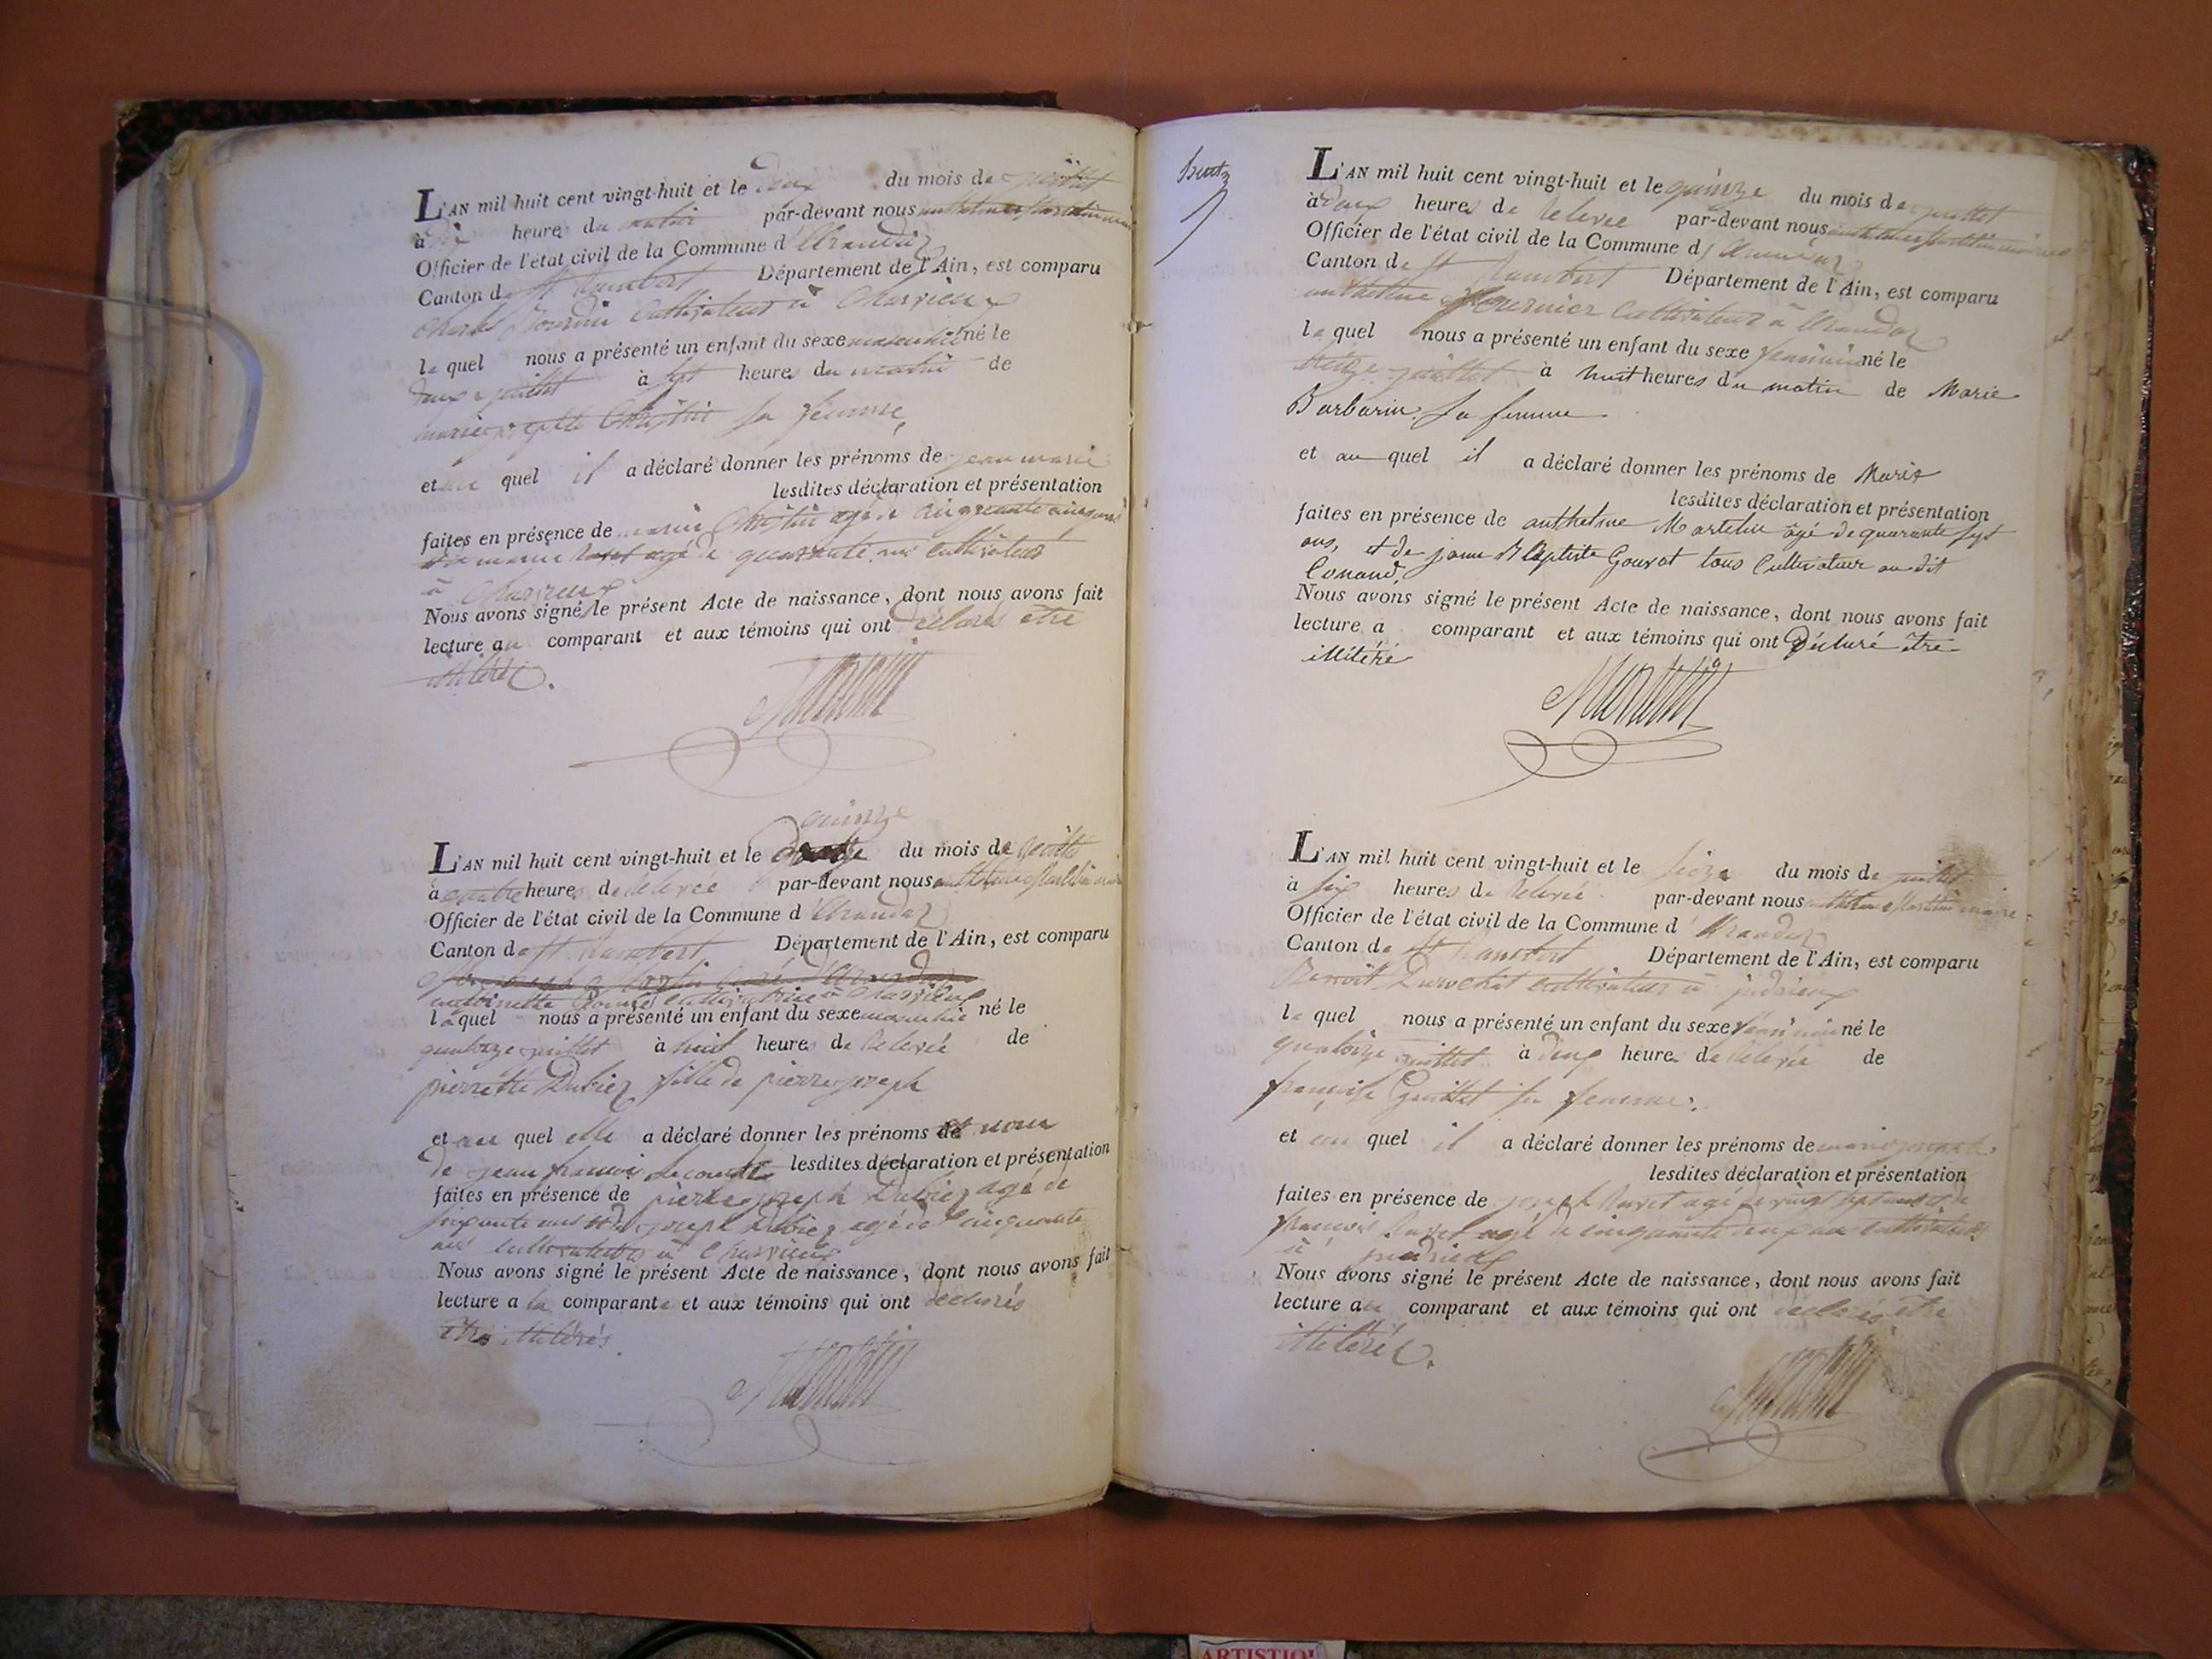 L'AN mil huit cent vingt-huit et le deux du mois de juillet
à dix heures du matin par-devant nous anthelme Martelin maire
Officier de l'état civil de la Commune d'Arandaz
Canton de St Rambert Département de l'Ain, est comparu
Charles Bourdin Cultivateur à Charvieux
le quel nous a présenté un enfant du sexe masculin né le
deux juillet à sept heures du matin de
marie josephte sa femme,
et au quel il a déclaré donner les prénoms de jean marie
lesdites déclaration et présentation
faites en présence de agé de cinquante cinq ans
et de marie agé de quarante ans cultivateurs
à Charvieux
Nous avons signé le présent Acte de naissance, dont nous avons fait
lecture au comparant et aux témoins qui ont déclarés etre
illitérés.
Martelin
quinze
L'AN mil huit cent vingt-huit et le du mois de juillet
à quatre heures de relevée par-devant nous anthelme Martelin maire
Officier de l'état civil de la Commune d'Arandaz
Canton de St Rambert Département de l'Ain, est comparu
antoinette cultivatrice à Charvieux
la quel nous a présenté un enfant du sexe masculin né le
quatorze juillet à huit heures de relevée de
pierrette Dubiez fille de pierre joseph
et au quel elle a déclaré donner les prénoms et nom
de jean francois lesdites déclaration et présentation
faites en présence de pierre joseph Dubiez agé de
soixante ans et de joseph Dubiez agé de Cinquante
ans cultivateurs à Charvieux
Nous avons signé le présent Acte de naissance, dont nous avons fait
lecture a la comparante et aux témoins qui ont declarés
etre illitérés.
Martelin
L'AN mil huit cent vingt-huit et le quinze du mois de juillet
à deux heures de relevée par-devant nous anthelme Martelin maire
Officier de l'état civil de la Commune d'Arandaz
Canton de St Rambert Département de l'Ain, est comparu
anthelme Fournier Cultivateur à Arandaz
le quel nous a présenté un enfant du sexe féminin né le
treize juillet à huit heures du matin de Marie
Barbarin sa femme
et au quel il a déclaré donner les prénoms de Marie
lesdites déclaration et présentation
faites en présence de anthelme Martelin âgé de quarante sept
ans, et de jean Baptiste Gourat tous Cultivateur au dit
Conand.
Nous avons signé le présent Acte de naissance, dont nous avons fait
lecture a comparant et aux témoins qui ont Déclaré être
illitéré
Martelin
L'AN mil huit cent vingt-huit et le seize du mois de juillet
à six heures de relevée par-devant nous anthelme Martelin maire
Officier de l'état civil de la Commune d'Arandaz
Canton de St Rambert Département de l'Ain, est comparu
Benoit Durochat cultivateur à judrieux
le quel nous a présenté un enfant du sexe féminin né le
quatorze juillet à deux heures de relevée de
françoise sa femme.
et au quel il a déclaré donner les prénoms de marie josephte
lesdites déclaration et présentation
faites en présence de joseph agé de vingt sept ans et de
francois agé de cinquante deux ans cultivateurs
à judrieux
Nous avons signé le présent Acte de naissance, dont nous avons fait
lecture au comparant et aux témoins qui ont declarés etre
illitérés.
Martelin